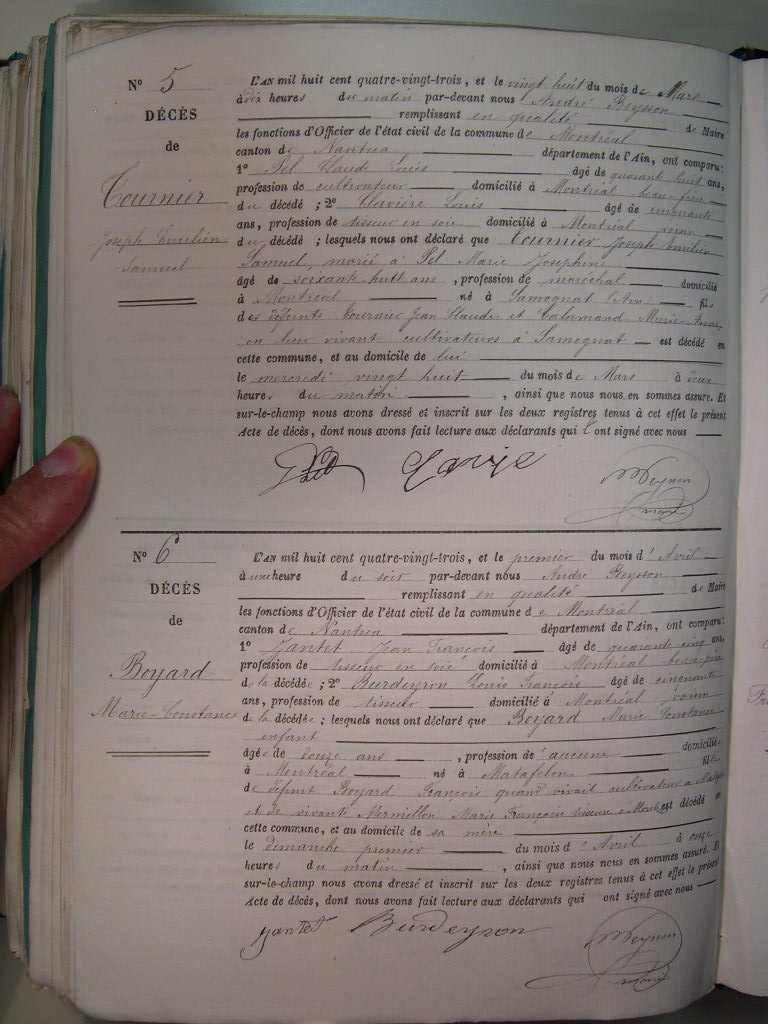 N° 5
DÉCÈS
de
Tournier
Joseph Emilien
Samuel
L'AN mil huit cent quatre-vingt-trois, et le vingt huit du mois de Mars
à dix heures du matin par-devant nous André Beysson
remplissant en qualité de Maire
les fonctions d'Officier de l'état civil de la commune de Montréal
canton de Nantua département de l'Ain, ont comparu:
1° Pel Claude Louis âgé de quarante huit ans,
profession de cultivateur domicilié à Montréal beau frère
du décédé; 2° Louis âgé de cinquante
ans, profession de tisseur en soie domicilié à Montréal voisin
du décédé; lesquels nous ont déclaré que Tournier Joseph Emilien
Samuel, marié à Pel Marie Josephine
âgé de soixante huit ans, profession de maréchal domicilié
à Montréal né à Samognat (Ain) fils
des défunts Tournier Jean Claude et Calamand Marie
en leur vivant cultivateurs à Samognat est décédé en
cette commune, et au domicile de lui
le mercredi vingt huit du mois de Mars à
heures du matin, ainsi que nous nous en sommes assuré. Et
sur-le-champ nous avons dressé et inscrit sur les deux registres tenus à cet effet le présent
Acte de décès, dont nous avons fait lecture aux déclarants qui l'ont signé avec nous
Pel
N° 6
DÉCÈS
de
Boyard
Marie-Constance
L'AN mil huit cent quatre-vingt-trois, et le premier du mois d'Avril
à une heure du soir par-devant nous André Beysson
remplissant en qualité de Maire
les fonctions d'Officier de l'état civil de la commune de Montréal
canton de Nantua département de l'Ain, ont comparu:
1° Jantet Jean François âgé de quarante cinq ans,
profession de tisseur en soie domicilié à Montréal beau père
de la décédée; 2° Burdeyron Louis François âgé de cinquante
ans, profession de tisseur domicilié à Montréal voisin
de la décédée; lesquels nous ont déclaré que Boyard Marie Constance
enfant
âgée de douze ans, profession de aucune domiciliée
à Montréal né à Matafelon fille
de défunt Boyard François quand vivait cultivateur à
et de vivante Vermillon Marie Françoise tisseuse à est décédé en
cette commune, et au domicile de sa mère
le dimanche premier du mois d'Avril à onze
heures du matin, ainsi que nous nous en sommes assuré. Et
sur-le-champ nous avons dressé et inscrit sur les deux registres tenus à cet effet le présent
Acte de décès, dont nous avons fait lecture aux déclarants qui ont signé avec nous
Jantet Burdeyron